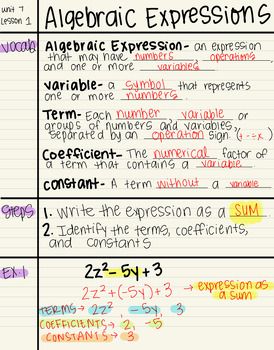 unit 7
Lesson 1
Algebraic Expressions
vocab
Algebraic Expression- an expression
that may have numbers, operations,
and one or more variables.
variable- a symbol that represents
one or more numbers.
Term- Each number, variable or
groups of numbers and variables,
separated by an operation sign. (+ - ÷ x)
Coefficient- The numerical factor of
a term that contains a variable.
constant- A term without a variable.
Steps
1. Write the expression as a SUM.
2. Identify the terms, coefficients,
and constants.
EX
2z²-5y+3
2z²+(-5y)+3 → expression as
a sum
TERMS → 2z², -5y, 3
COEFFICIENTS → 2, -5
CONSTANTS → 3